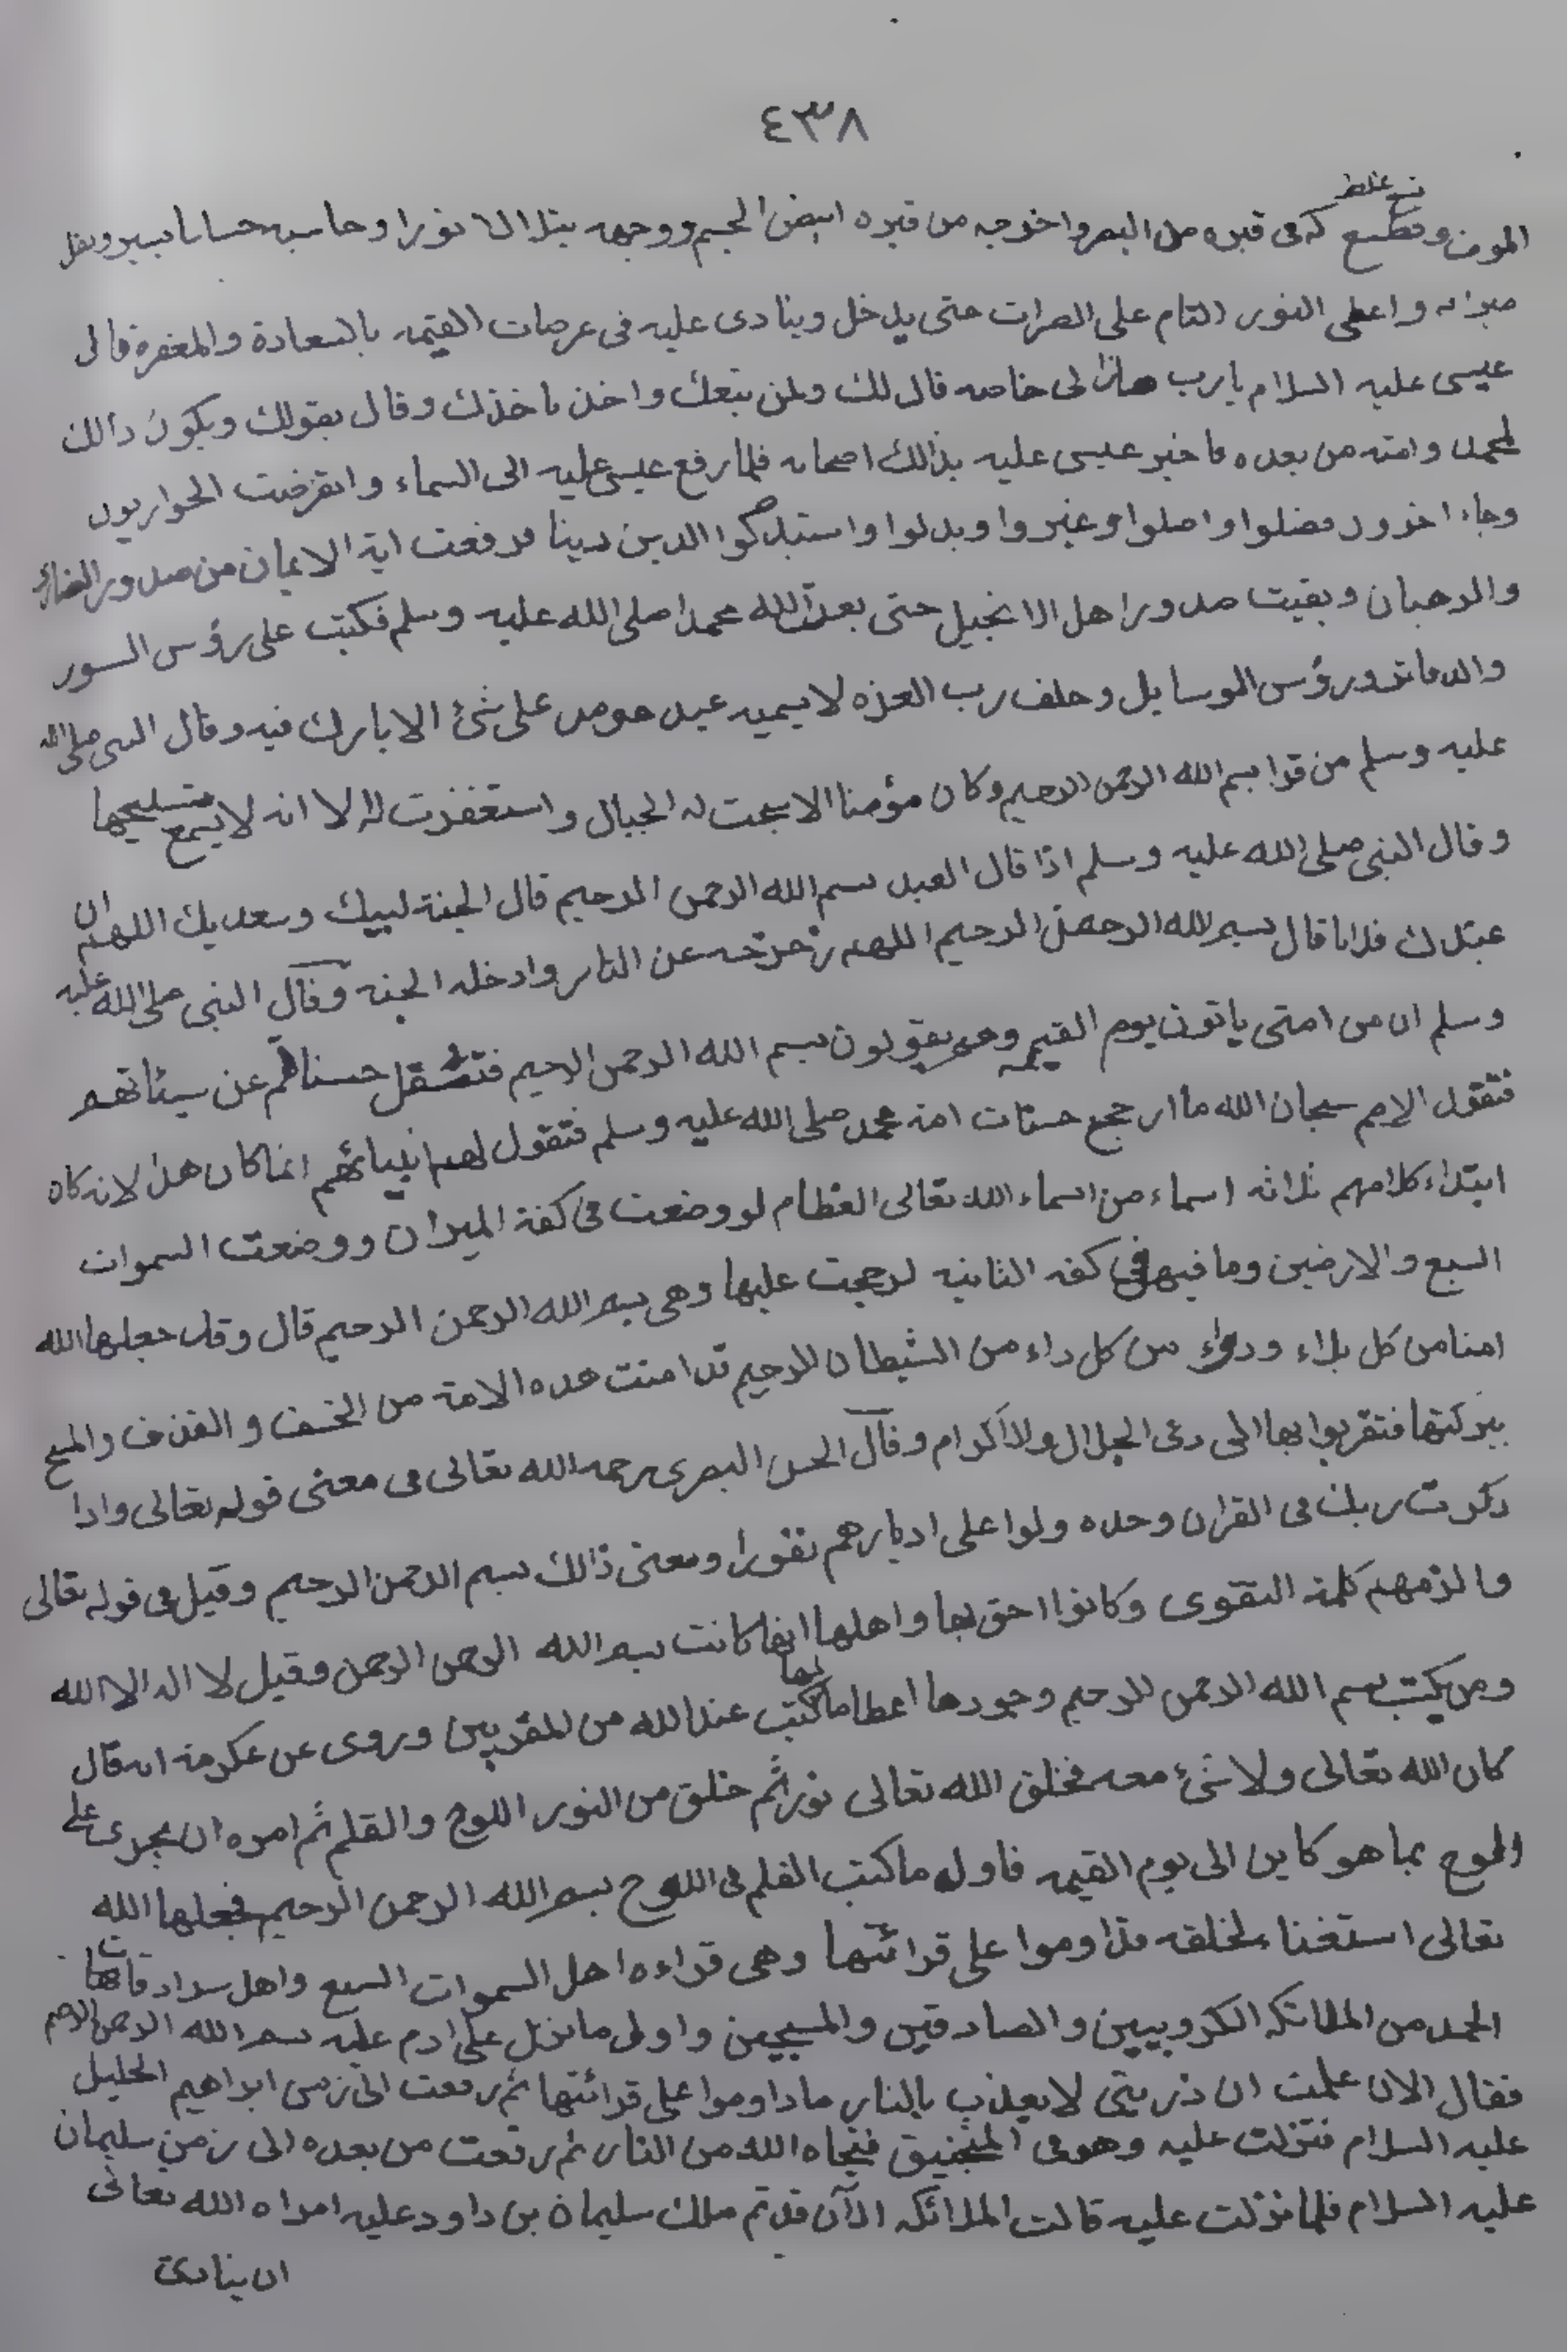 ٤٣٨
الموت وفسح له فى قبره مد البصر واخرجه من قبره ابيض الجسم ووجهه يتلالا نورا وحاسبه حسابا يسير وثقل
ميزانه واعطى النور التام على الصرات حتى يدخل وينادى عليه فى عرصات القيمه بالسعادة والمغفرة قال
عيسى عليه السلام يارب هاذا لى خاصه قال لك ولمن يتبعك واخذ ماخذك وقال بقولك ويكون ذالك
لمحمد وامته من بعده فاخبر عيسى عليه بذالك اصحابه فلما رفع عيسى عليه الى السماء وانقرضت الحواريون
وجاء اخرون فضلوا واضلوا وغيروا وبدلوا واستبدلوا الدين دينا فرفعت اية الايمان من صدور النصارى
والرهبان وبقيت صدور اهل الانجيل حتى بعث الله محمدا صلى الله عليه وسلم فكتبت على رؤس السور
والدفاتر ورؤس الوسايل وحلف رب العزه لا يسميه عبد مومن على شئ الا بارك فيه وقال النبى صلى الله
عليه وسلم من قرا بسم الله الرحمن الرحيم وكان مؤمنا الا سبحت له الجبال واستغفرت له الا انه لا يسمع تسبيحها
وقال النبى صلى الله عليه وسلم اذا قال العبد بسم الله الرحمن الرحيم قال الجنة لبيك وسعديك اللهم ان
عبدك فلانا قال بسم الله الرحمن الرحيم اللهم زحزحه عن النار وادخله الجنه وقال النبى صلى الله عليه
وسلم ان من امتى ياتون يوم القيمه وهم يقولون بسم الله الرحمن الرحيم فتثقل حسناتهم عن سيئاتهم
فتقول الامم سبحان الله ما ارجح حسنات امة محمد صلى الله عليه وسلم فتقول لهم انبيائهم انما كان هذا لانه كان
ابتداء كلامهم ثلاثه اسماء من اسماء الله تعالى العظام لو وضعت فى كفة الميزان ووضعت السموات
السبع والارضين وما فيها فى كفه الثانيه لرجحت عليها وهى بسم الله الرحمن الرحيم قال وقد جعلها الله
امنا من كل بلاء ودواء من كل داء من الشيطان الرجيم قد امنت هده الامة من الخسف والقذف والمسخ
ببركتها فتقربوا بها الى دى الجلال ولاكرام وقال الحسن البصرى رحمه الله تعالى فى معنى قوله تعالى وادا
دكرت ربك فى القران وحده ولوا على ادبارهم نفورا ومعنى ذالك بسم الرحمن الرحيم وقيل فى قوله تعالى
والزمهم كلمة التقوى وكانوا احق بها واهلها انها كانت بسم الله الرحمن الرحمن وقيل لا اله الا الله
ومن يكتب بسم الله الرحمن الرحيم وجودها اعطاما لها كتب عند الله من المقربين وروى عن عكرمة انه قال
كان الله تعالى ولا شئ معه فخلق الله تعالى نورا ثم خلق من النور اللوح والقلم ثم امره ان يجرى على
اللوح بما هو كاين الى يوم القيمه فاول ما كتب القلم فى اللوح بسم الله الرحمن الرحيم فجعلها الله
تعالى استغناء لخلقه فداوموا على قرائتها وهى قراءه اهل السموات السبع واهل سرادقاتها
الحمد من الملائكه الكروبيين والصادقين والمسبحين واول ما نزل على ادم عليه بسم الله الرحمن الرحيم
فقال الان علمت ان ذريتى لا يعذب بالنار ما داوموا على قرائتها ثم رفعت الى زمن ابراهيم الخليل
عليه السلام فنزلت عليه وهو فى المنجنيق فنجاه الله من النار ثم رفعت من بعده الى زمن سليمان
عليه السلام فلما نزلت عليه قالت الملائكه الآن قد تم ملك سليمان بن داود عليه امراه الله تعالى
ان ينادى